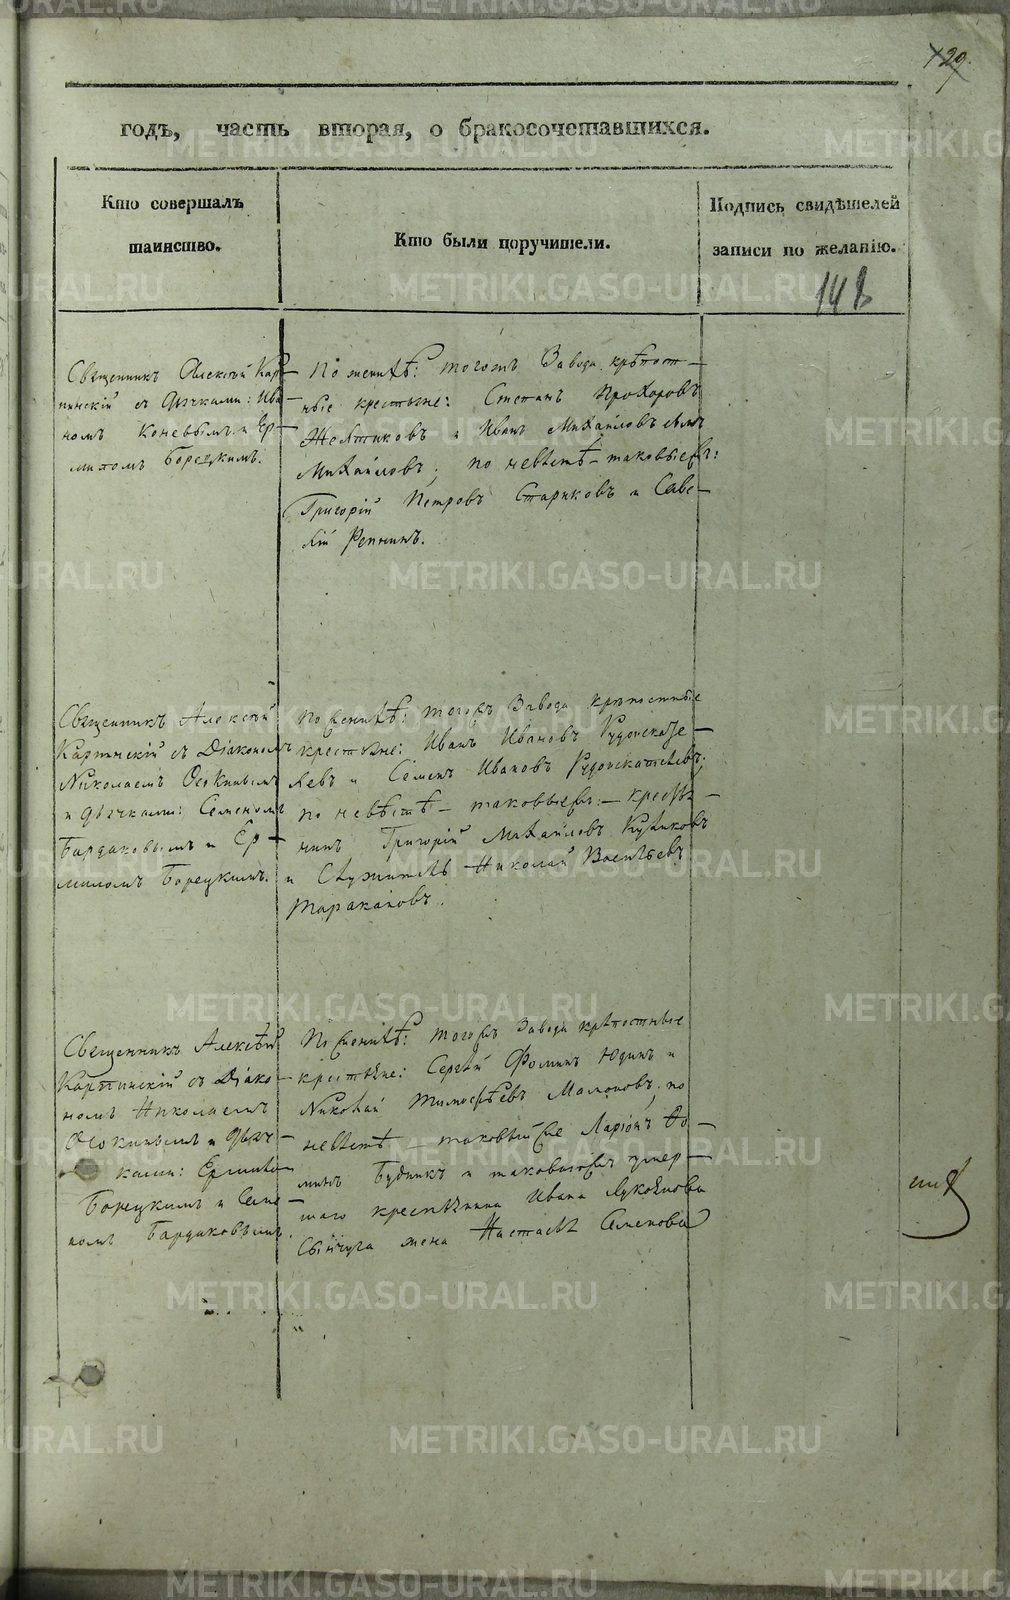 129.
годъ, часть вторая, о бракосочетавшихся.
Кто совершалъ
таинство.
Кто были поручители.
Подпись свидѣтелей
записи по желанію.
148
Священникъ Алексѣй Кар-
пинскій съ дьячками: Ива-
номъ Коневымъ и Ер-
миломъ Борецкимъ.
По женихѣ: тогожъ Завода крѣпост-
ные крестьяне: Степанъ Прохоровъ
Желтиковъ и Иванъ Михайловъ сынъ
Михайловъ; по невѣстѣ - таковыежъ:
Григорій Петровъ Стариковъ и Саве-
лій Репнинъ.
Священникъ Алексѣй
Карпинскій съ Діакономъ
Николаемъ Осокинымъ
и дьячками: Семеномъ
Бардаковымъ и Ер-
миломъ Борецкимъ.
По женихѣ: тогожъ Завода крѣпостные
крестьяне: Иванъ Ивановъ Рудоискате-
левъ и Семенъ Ивановъ Рудоискателевъ;
по невѣстѣ - таковыежъ: - кресть-
нинъ Григорій Михайловъ
и Служитель Николай Васильевъ
Таракановъ.
Священникъ Алексѣй
Карпинскій съ Діако-
номъ Николаемъ
Осокинымъ и дьяч-
ками: Ермиломъ
Борецкимъ и Семе-
номъ Бардаковымъ.
По женихѣ: тогожъ Завода крѣпостные
крестьяне: Сергѣй Фоминъ Юдинъ и
Николай Тимофѣевъ Мамоновъ; по
невѣстѣ таковыйже Ларіонъ Фо-
минъ и таковагожъ умер-
шаго крестьянина Ивана Лукоянова
жена Настасья Семенова
METRIKI.GASO-URAL.RU